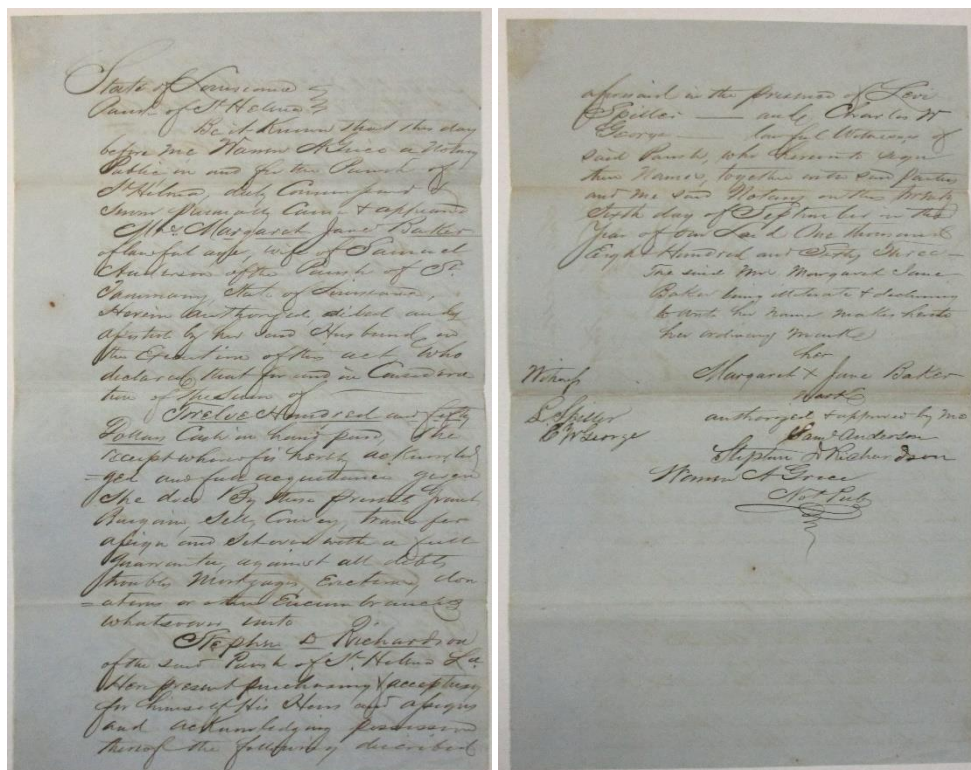 State of Louisiana
Parish of St Helena
Be it Known that this day
before me Warren A Grice a Notary
Public in and for the Parish of
St Helena duly Commissioned &
Sworn personally Came & appeared
Mrs Margaret Jane Baker
of lawful age, wife of Samuel
Anderson of the Parish of St.
Tammany, State of Louisiana,
Herein authorized, aided and
assisted by her said Husband in
the Execution of this act, Who
declared, that for and in Considera
tion of the Sum of
Twelve Hundred and fifty
Dollars Cash in hand paid, The
receipt whereof is hereby acknowled
=ged and full acquittance given
She does By these presents Grant
Bargain, Sell, Convey, transfer
assign and Set over with a full
Guarantee, against all debts,
troubles Mortgages, Evictions, don
=ations or other Encumbrances
whatsoever unto
Stephen D Richardson
of the said Parish of St Helena La
Here present purchasing & accepting
for himself His Heirs and assigns
and acknowledging possession
thereof the following described
aforesaid in the presence of Levi
Spiller — and Charles W
George — lawful Witnesses of
said Parish, who hereunto sign
their Names, together with said parties
and me said Notary on this the
Sixth day of September in the
Year of our Lord One thousand
Eight Hundred and Sixty Three —
The said Mrs Margaret Jane
Baker being illiterate & declaring
to write her name makes hereto
her ordinary mark
her
Margaret X Jane Baker
mark
Witness
L Spiller
C W George
authorized & approved by me
Saml Anderson
Stephen D Richardson
Warren A Grice
Not Pub